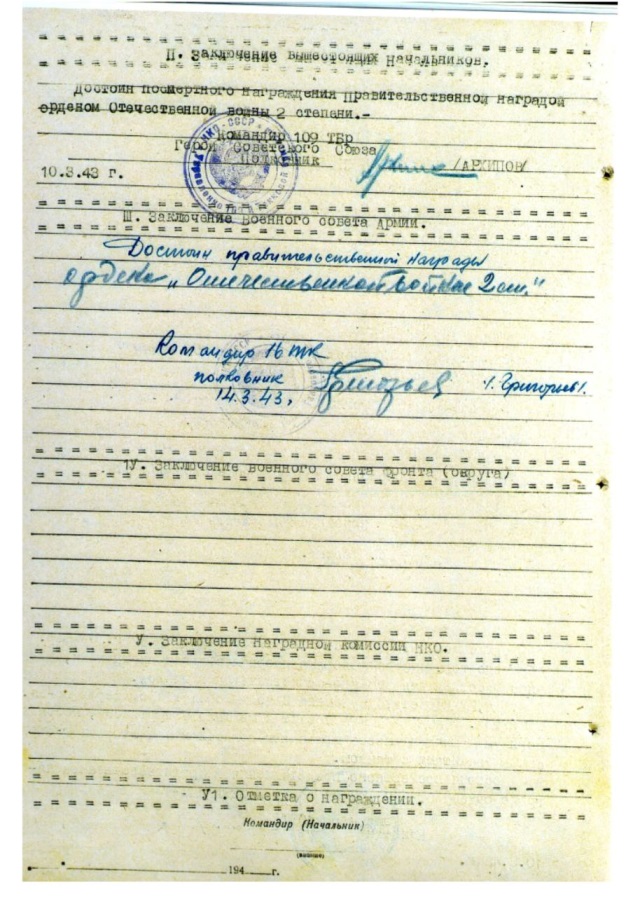 П. Заключение вышестоящих Начальников.
Достоин посмертного награждения Правительственной наградой
орденом Отечественной войны 2 степани.-
Командир 109 ТБр
Герой Советского Союза
Полковник /АРХИПОВ/
10.3.43 г.
Ш. Заключение военного совета Армии.
Достоин правительственной награды
ордена „Отечественной войны 2 ст."
Командир 16 тк
полковник /. Григорьев /.
14.3.43,
1У. Заключение военного совета фронта (округа)
У. Заключение Наградной комиссии НКО.
У1. Отметка о награждении.
Командир (Начальник)
194 г.